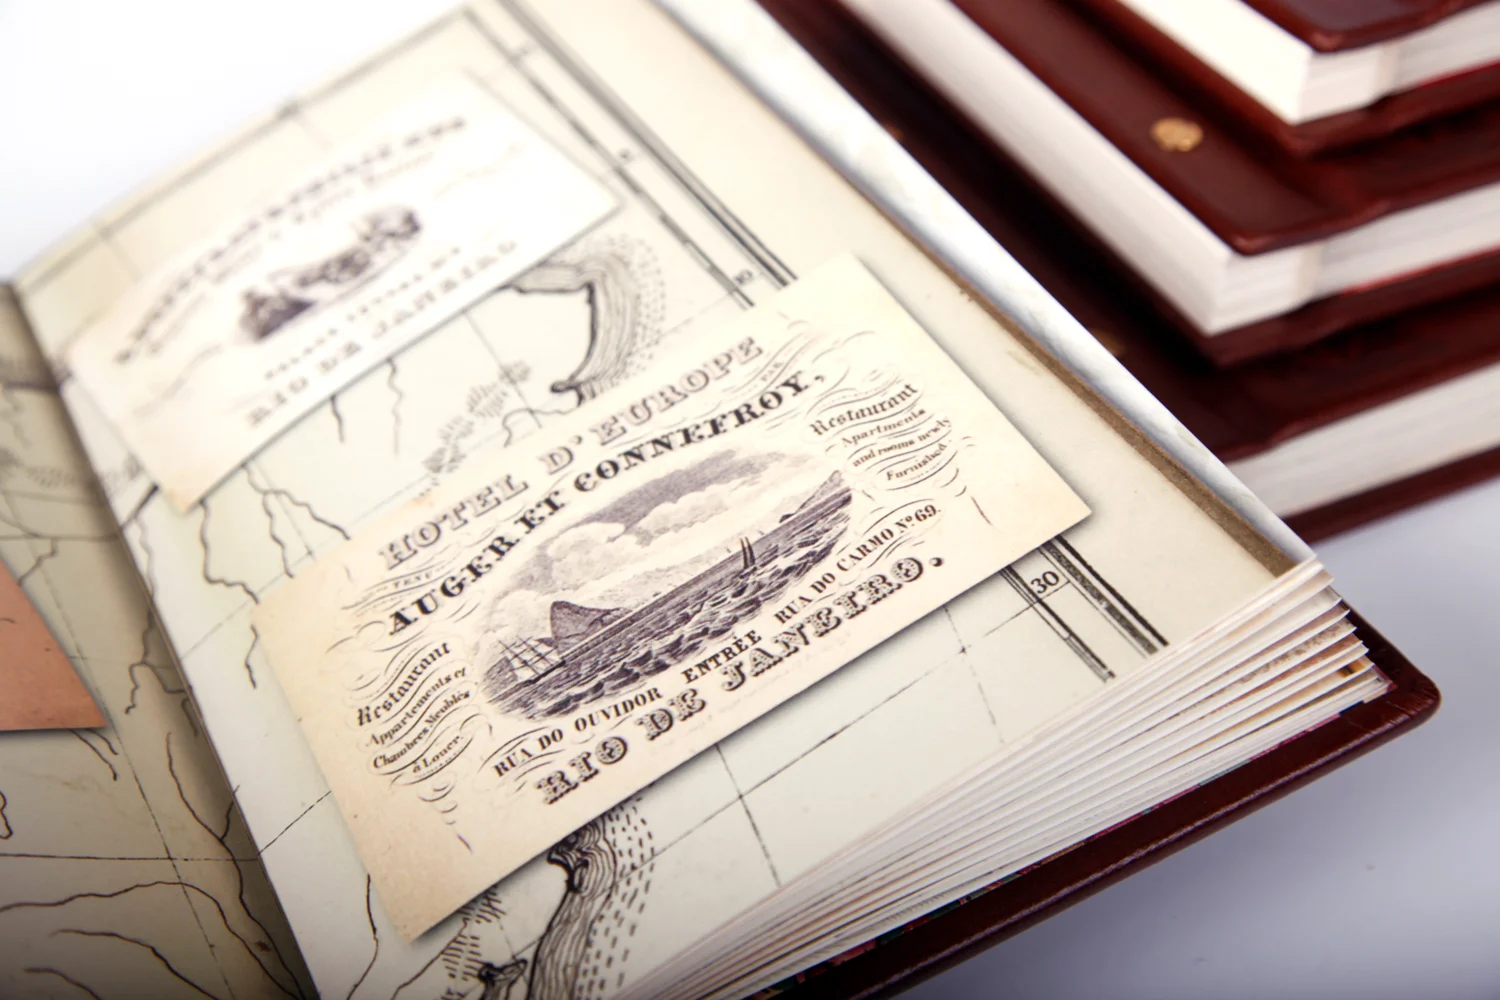 RIO DE JANEIRO.
10
HOTEL D'EUROPE
TENU
PAR
AUGER ET CONNEFROY,
Restaurant
Apartments
and rooms newly
Furnished.
Restaurant
Appartements et
Chambres Meublés
à Louer.
RUA DO OUVIDOR ENTRÉE RUA DO CARMO Nº 69.
RIO DE JANEIRO.
30